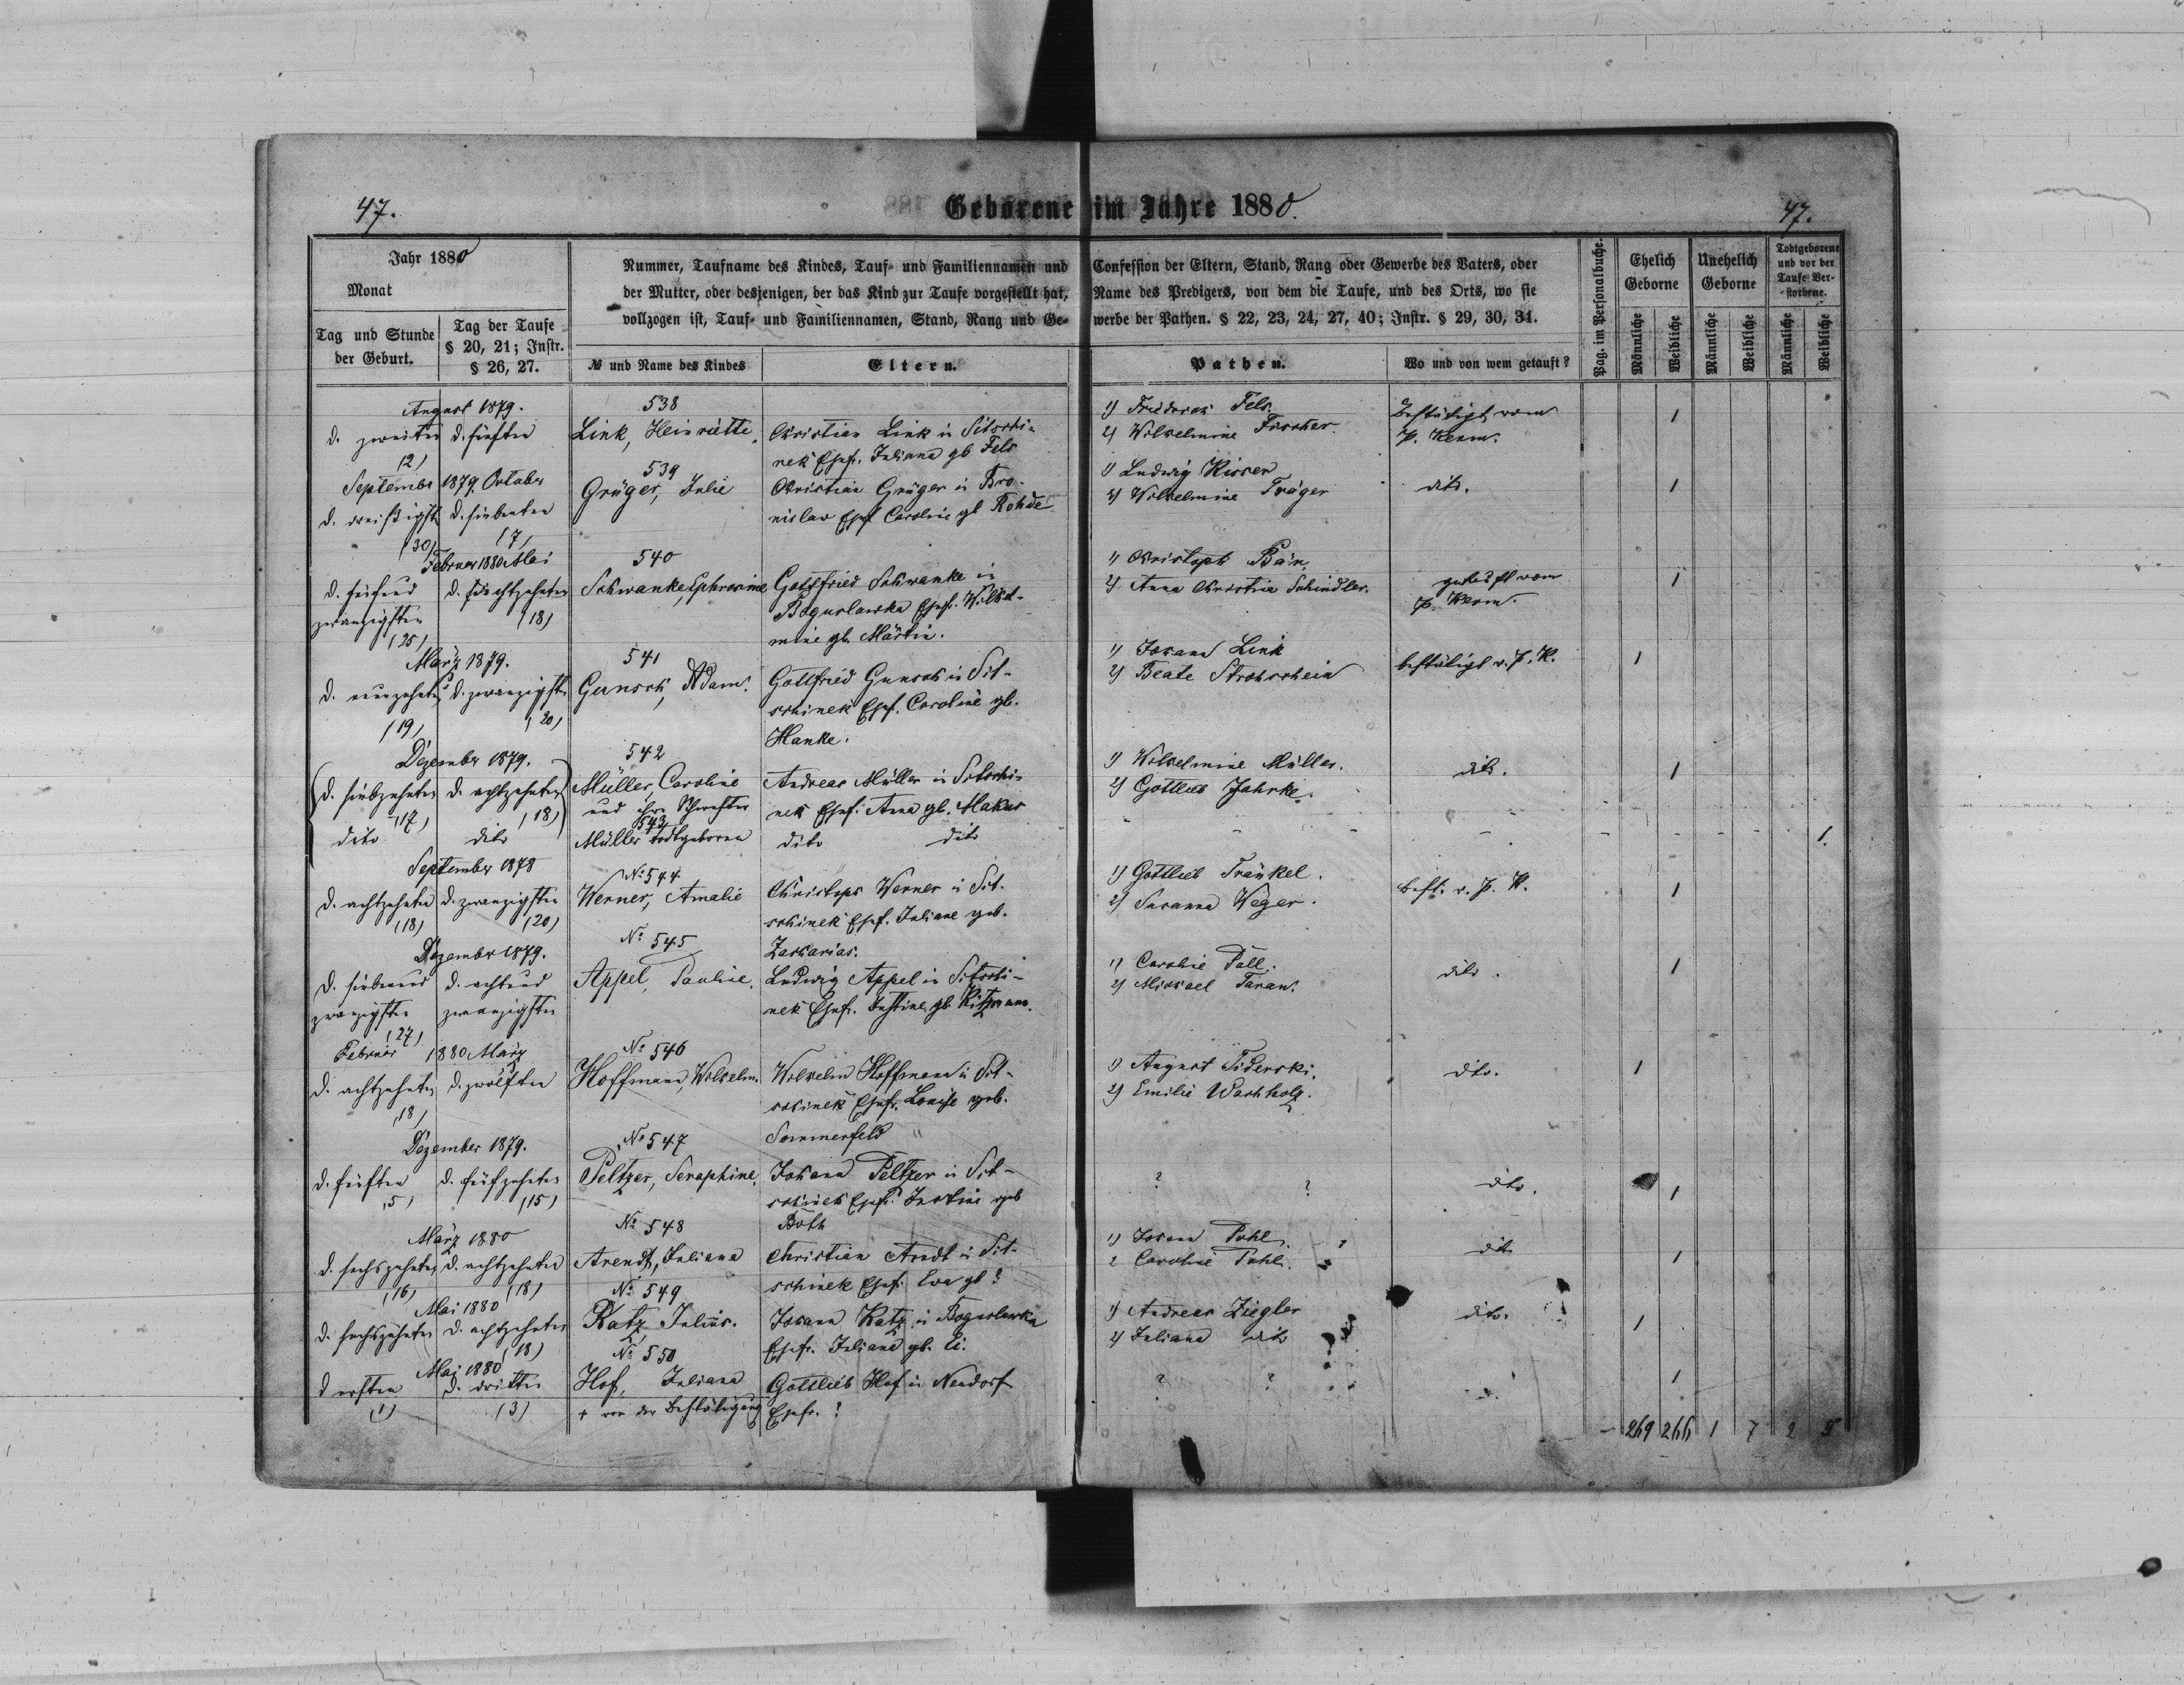 47.
Geborene im Jahre 1880.
47.
Jahr 1880
Monat
Tag und Stunde der Geburt.
Tag der Taufe § 20, 21; Instr. § 26, 27.
Nummer, Taufname des Kindes, Tauf- und Familiennamen und
der Mutter, oder desjenigen, der das Kind zur Taufe vorgestellt hat,
vollzogen ist, Tauf- und Familiennamen, Stand, Rang und Ge-
№ und Name des Kindes
Eltern.
Confession der Eltern, Stand, Rang oder Gewerbe des Vaters, oder
Name des Predigers, von dem die Taufe, und des Orts, wo sie
werbe der Pathen. § 22, 23, 24, 27, 40; Instr. § 29, 30, 31.
Pathen.
Wo und von wem getauft?
Pag. im Personalbuche.
Ehelich Geborne
Unehelich Geborne
Todtgeborene und vor der Taufe Verstorbene.
Männliche
Weibliche
Männliche
Weibliche
Männliche
Weibliche
August 1879.
538
d. zweiten d. fünften
Link, Heinriette.
Christian Link in Sitschi-
nek Ehefr. Juliana gb Fels
1) Friedrich Fels.
2) Wilhelmine Fischer.
Bestätigt vom
P. Kerm.
1
12)
September 1879. October
539
d. dreißigst. d. siebenten
(30) (7)
Grüger, Julie
Christian Grüger in Bro-
nislav Ehef Caroline gb Rohde
1) Ludwig Kisser
2) Wilhelmine Träger
dito.
1
Februar 1880 Mai
540
d. fünfund d. achtzehnten
zwanzigsten (18)
(25)
Schwanke, Ephrosine
Gottfried Schwanke in
Boguslawka Ehefr. Wilhel-
mine gb. Martin.
1) Christoph Bär.
2) Anna Christina Schindler.
getauft vom
P. Kerm.
1
März 1879.
541
d. neunzehnten d. zwanzigste
(19) (20)
Gunsch, Adam.
Gottfried Gunsch in Sit-
schinek Ehef. Caroline gb.
Hanke.
1) Johann Link
2) Beate Strohschein
bestätigt v. P. K.
1
Dezember 1879.
542
d. siebzehnten d. achtzehnten
(17) (18)
Müller, Caroline
und ihre Schwester
Andreas Müller in Sitschi-
nek Ehef. Anna gb. Makus
1) Wilhelmine Müller.
2) Gottlieb Jahnke.
dito.
1
543
dito dito
Müller todtgeboren
dito dito
1.
September 1878
No 544.
d. achtzehnten d. zwanzigsten
(18) (20)
Werner, Amalie
Christoph Werner in Sit-
schinek Ehef. Juliane geb.
Zacharias.
1) Gottlieb Fränkel.
2) Susanna Weger.
best. v. P. K.
1
Dezember 1879.
No 545
d. siebenund d. achtund
zwanzigsten zwanzigsten
(27)
Appel, Pauline.
Ludwig Appel in Sitschi-
nek Ehefr. Justine gb. Kitzmann.
1) Caroline Pall.
2) Michael Taran.
dito.
1
Februar 1880 März
No 546
d. achtzehnten d. zwölften
(18)
Hoffmann, Wilhelm.
Wilhelm Hoffmann in Sit-
schinek Ehefr. Louise geb.
Sommerfeld
1) August Fiderski.
2) Emilie Warkholz.
dito.
1
Dezember 1879.
No 547
d. fünften d. fünfzehnten
(5) (15)
Peltzer, Seraphine.
Johann Peltzer in Sit-
schinek Ehefr. Justine geb
Both
? ?
dito.
1
März 1880
No 548
d. sechszehnten d. achtzehnten
(16) (18)
Arendt, Juliana
Christian Arndt in Sit-
schinek Ehef. Eva gb ?
1) Johann Pohl.
2 Caroline Pohl.
dito
1
Mai 1880
No 549
d. sechszehnten d. achtzehnten
(18)
Katz Julius.
Johann Katz in Boguslawka
Ehefr. Juliana gb. Ei.
1) Andreas Ziegler
2) Juliana dito
dito.
1
Mai 1880
No 550
d ersten d. dritten
(1) (3)
Hof, Juliana
+ vor der Bestätigung
Gottlieb Hof in Neudorf
Ehefr. ?
? ?
1
269 266 1 7 2 5